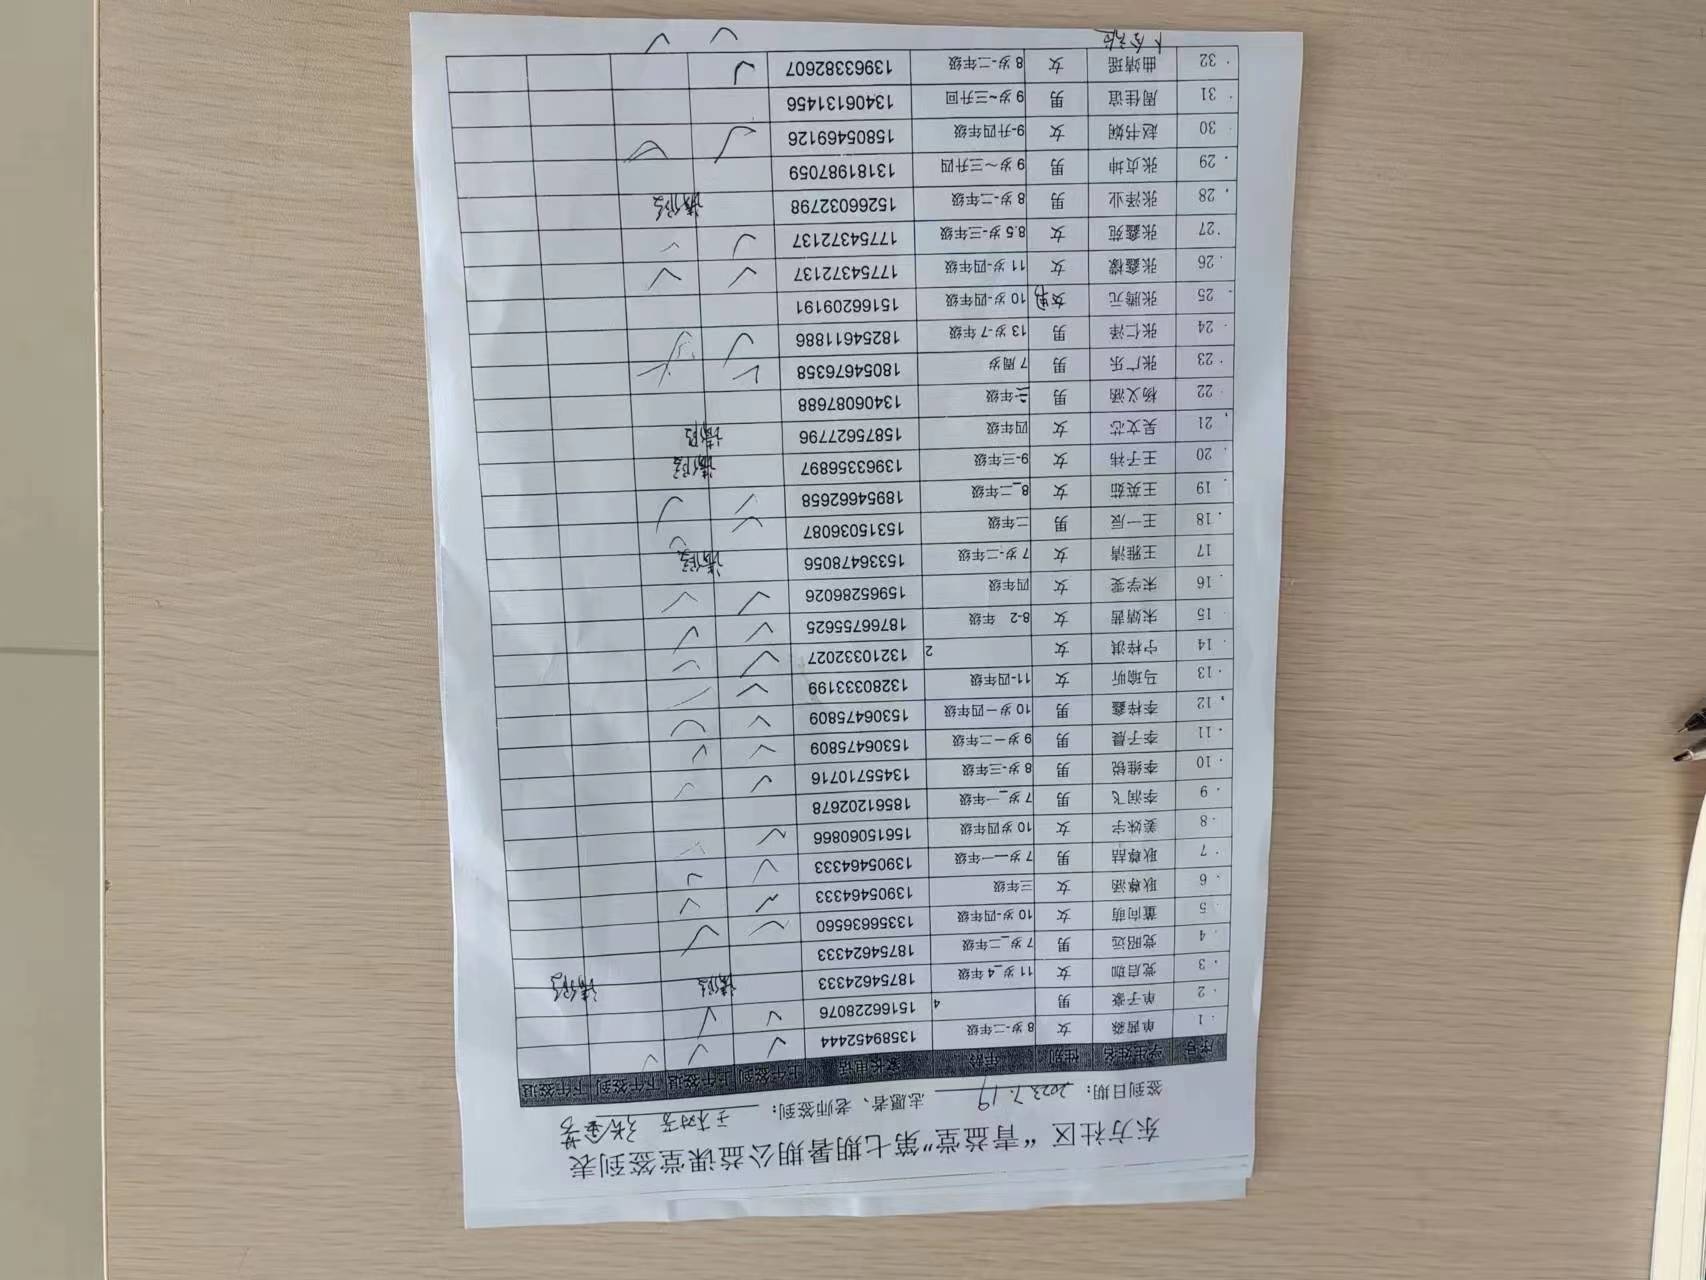 东方社区“青益堂”第七期暑期公益课堂签到表
签到日期: 2023.7.19 志愿者、老师签到: 王树芳
序号 学生姓名 性别 年龄 家长电话 上午签到 上午签退 下午签到 下午签退
1 单茜淼 女 8岁-二年级 13589452444 ✓ ✓ ✓
2 单子豪 男 4 15166228076 ✓ ✓
3 党启珈 女 11岁_4_年级 18754624333 请假 请假
4 党昭远 男 7岁_二年级 18754624333
5 董向萌 女 10岁-四年级 13356636560 ✓ ✓
6 耿尊涵 女 三年级 13905464333 ✓ ✓
7 耿尊喆 男 7岁——年级 13905464333 ✓ ✓
8 姜姝宇 女 10岁四年级 15615060866 ✓ ✓
9 李润飞 男 7岁_一年级 18561202678
10 李维锐 男 8岁-三年级 13455710716 ✓ ✓
11 李子晨 男 9岁一二年级 15306475809 ✓ ✓
12 李梓鑫 男 10岁一四年级 15306475809 ✓ ✓
13 马瑜昕 女 11-四年级 13280333199 ✓ ✓
14 宁梓淇 女 2 13210332027 ✓ ✓
15 宋婧茜 女 8-2 年级 18766755625 ✓ ✓
16 宋学雯 女 四年级 15965286026 ✓ ✓
17 王雅清 女 7岁-二年级 15336478056 请假
18 王一辰 男 二年级 15315036087 ✓ ✓
19 王英茹 女 8_二年级 18954662658 ✓ ✓
20 王子祎 女 9-三年级 13963356897 请假
21 吴文芯 女 四年级 15875627796 请假
22 杨义涵 男 三年级 13406087688
23 张广乐 男 7周岁 18054676358 ✓ ✓
24 张仁泽 男 13岁-7年级 18254611886 ✓ ✓
25 张腾元 男 10岁-四年级 15166209191
26 张鑫檬 女 11岁-四年级 17754372137 ✓ ✓
27 张鑫苑 女 8.5岁-三年级 17754372137 ✓ ✓
28 张泽业 男 8岁-二年级 15266032798 请假
29 张贞坤 男 9岁～三升四 13181987059
30 赵书娴 女 9-升四年级 15805469126 ✓ ✓
31 周佳谊 男 9岁~三升回 13406131456
32 曲靖瑶 女 8岁-二年级 13963382607 ✓
✓ ✓